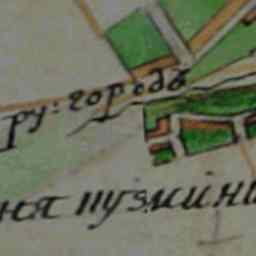 ру: городъ
ня пузмини